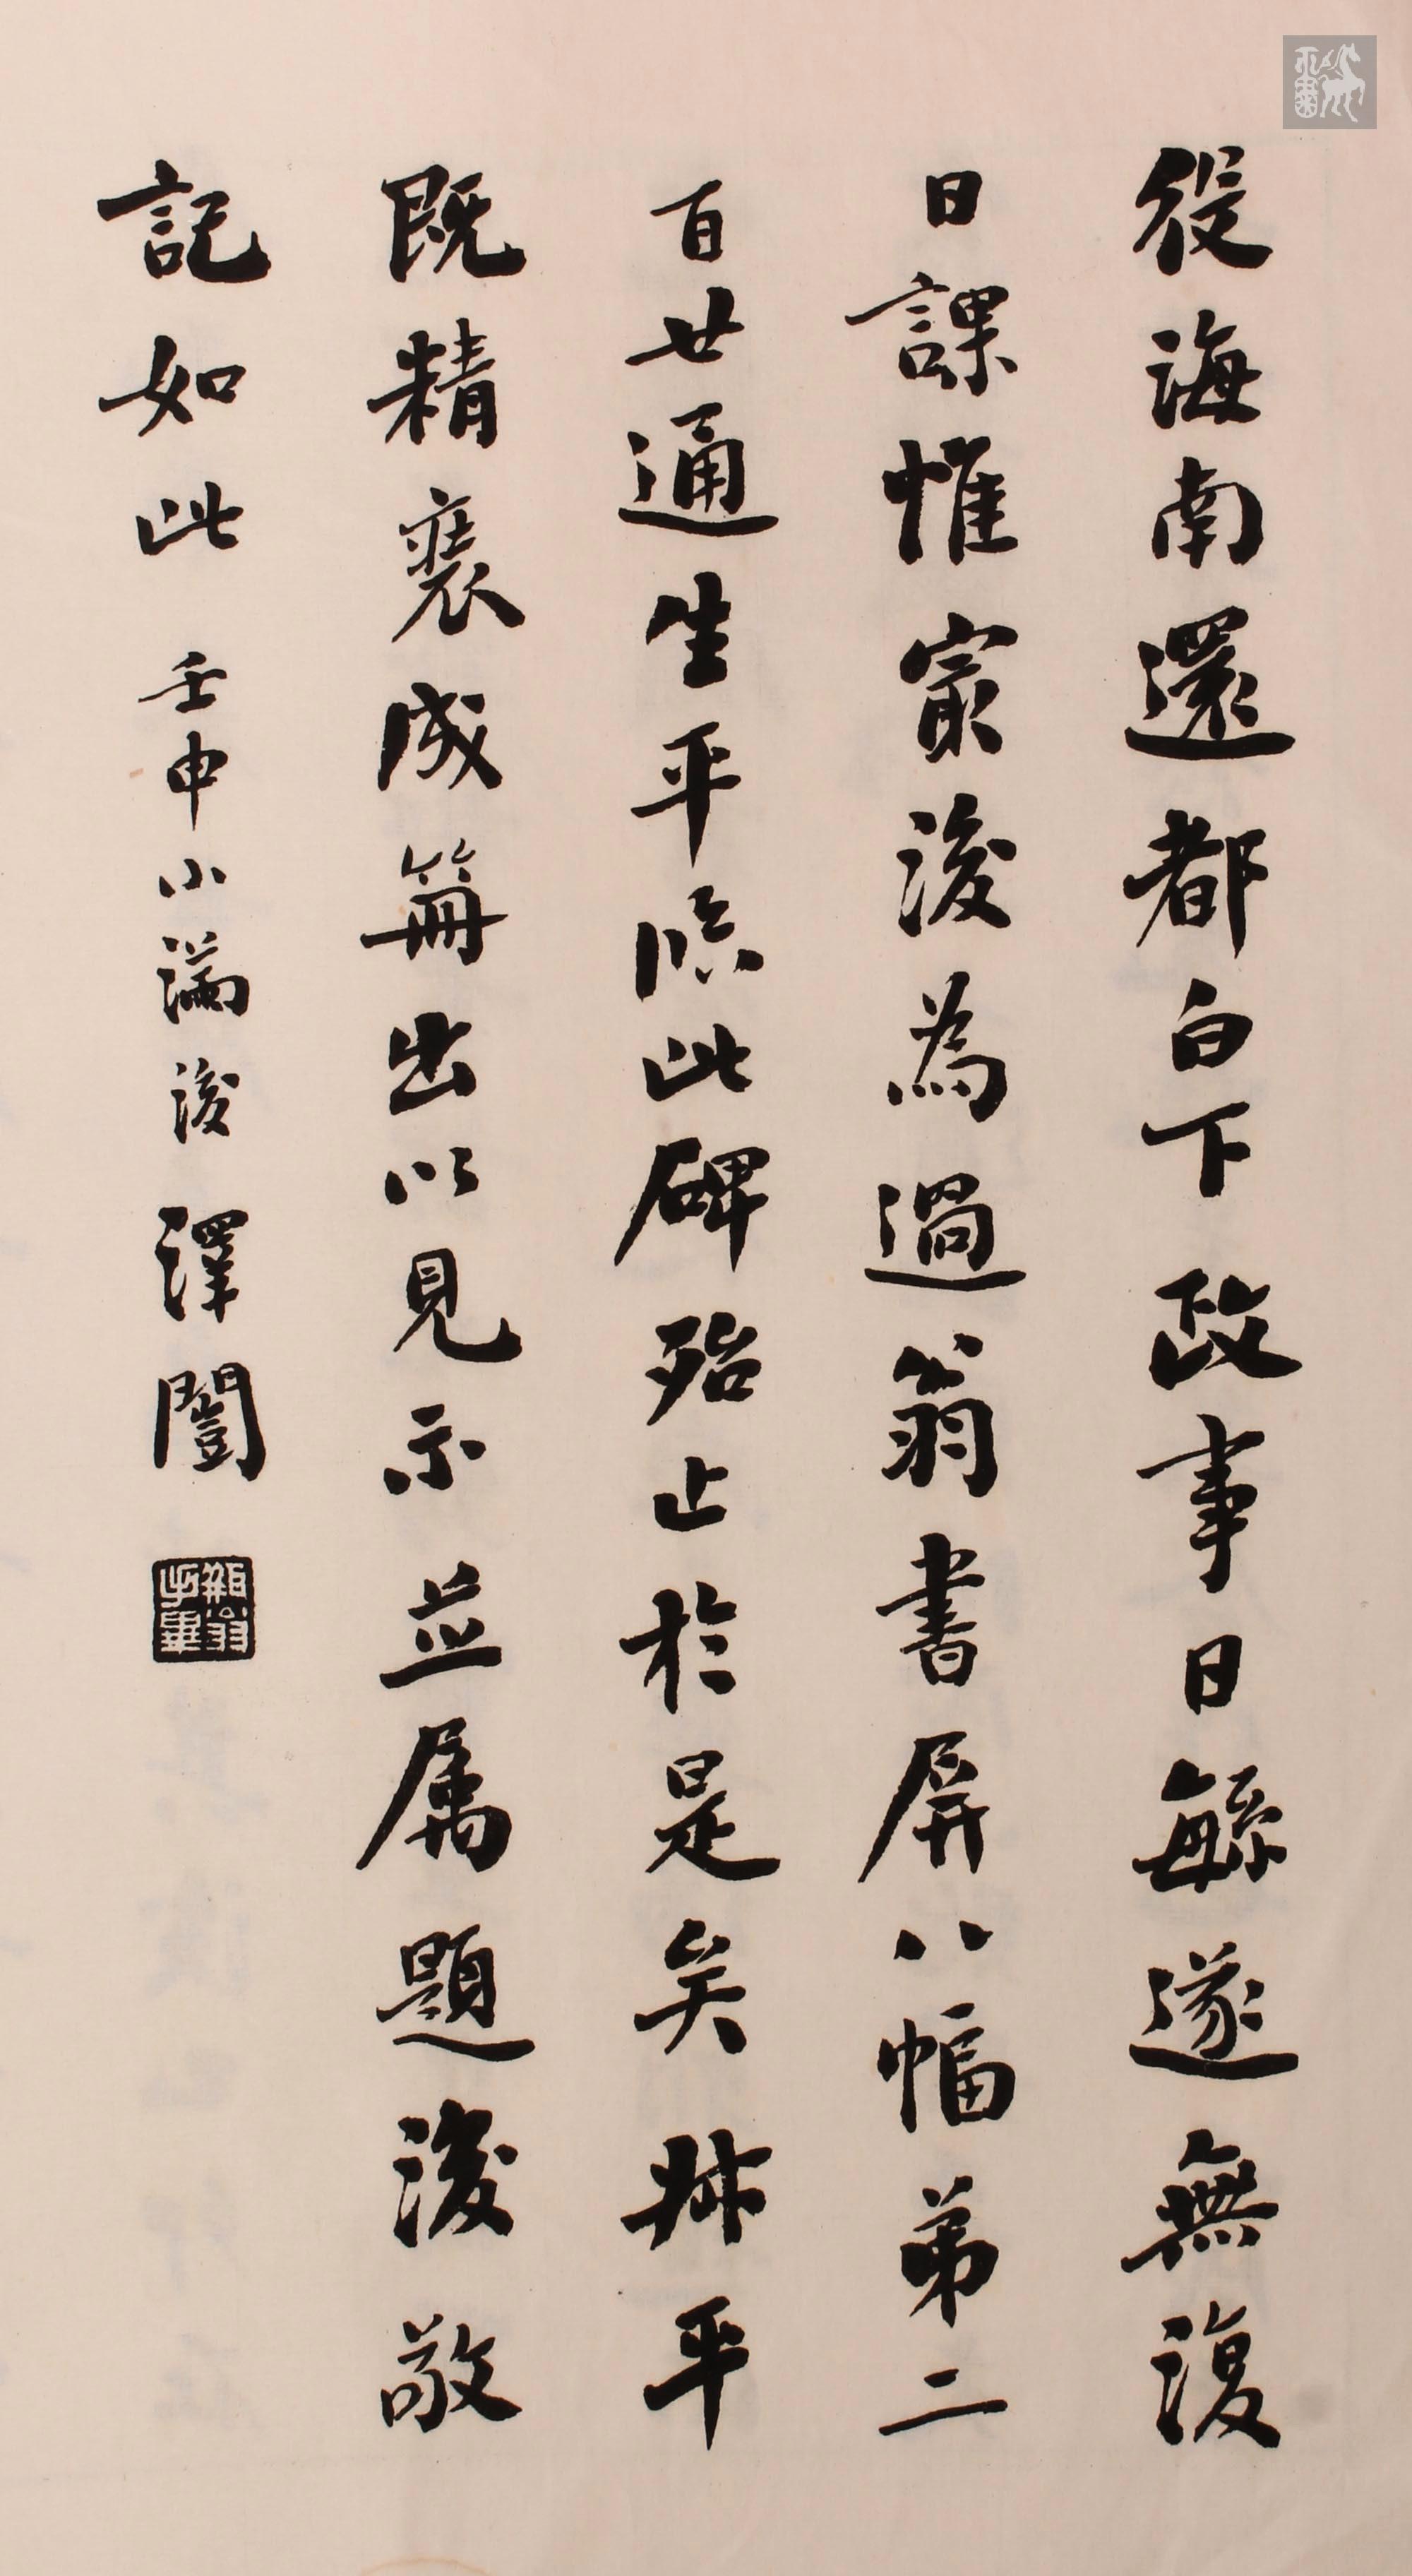 役海南還都白下政事日繁遂無復
日課惟冣後為過翁書屏八幅弟二
百廿通生平臨此碑殆止於是矣叔平
既精裘成冊出以見示並属題後敬
記如此 壬申小滿後 澤闓